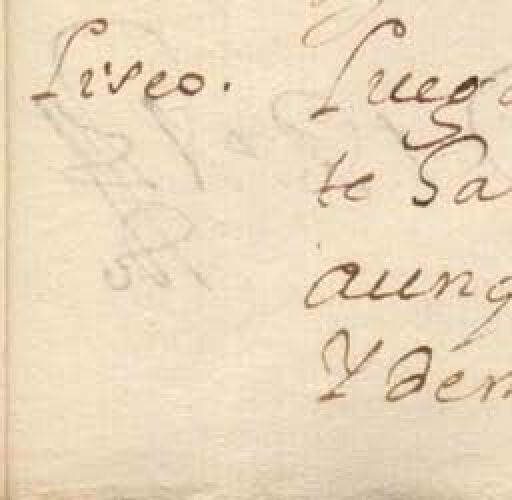 Liseo. Luego
te Sa
aunq
Y dem